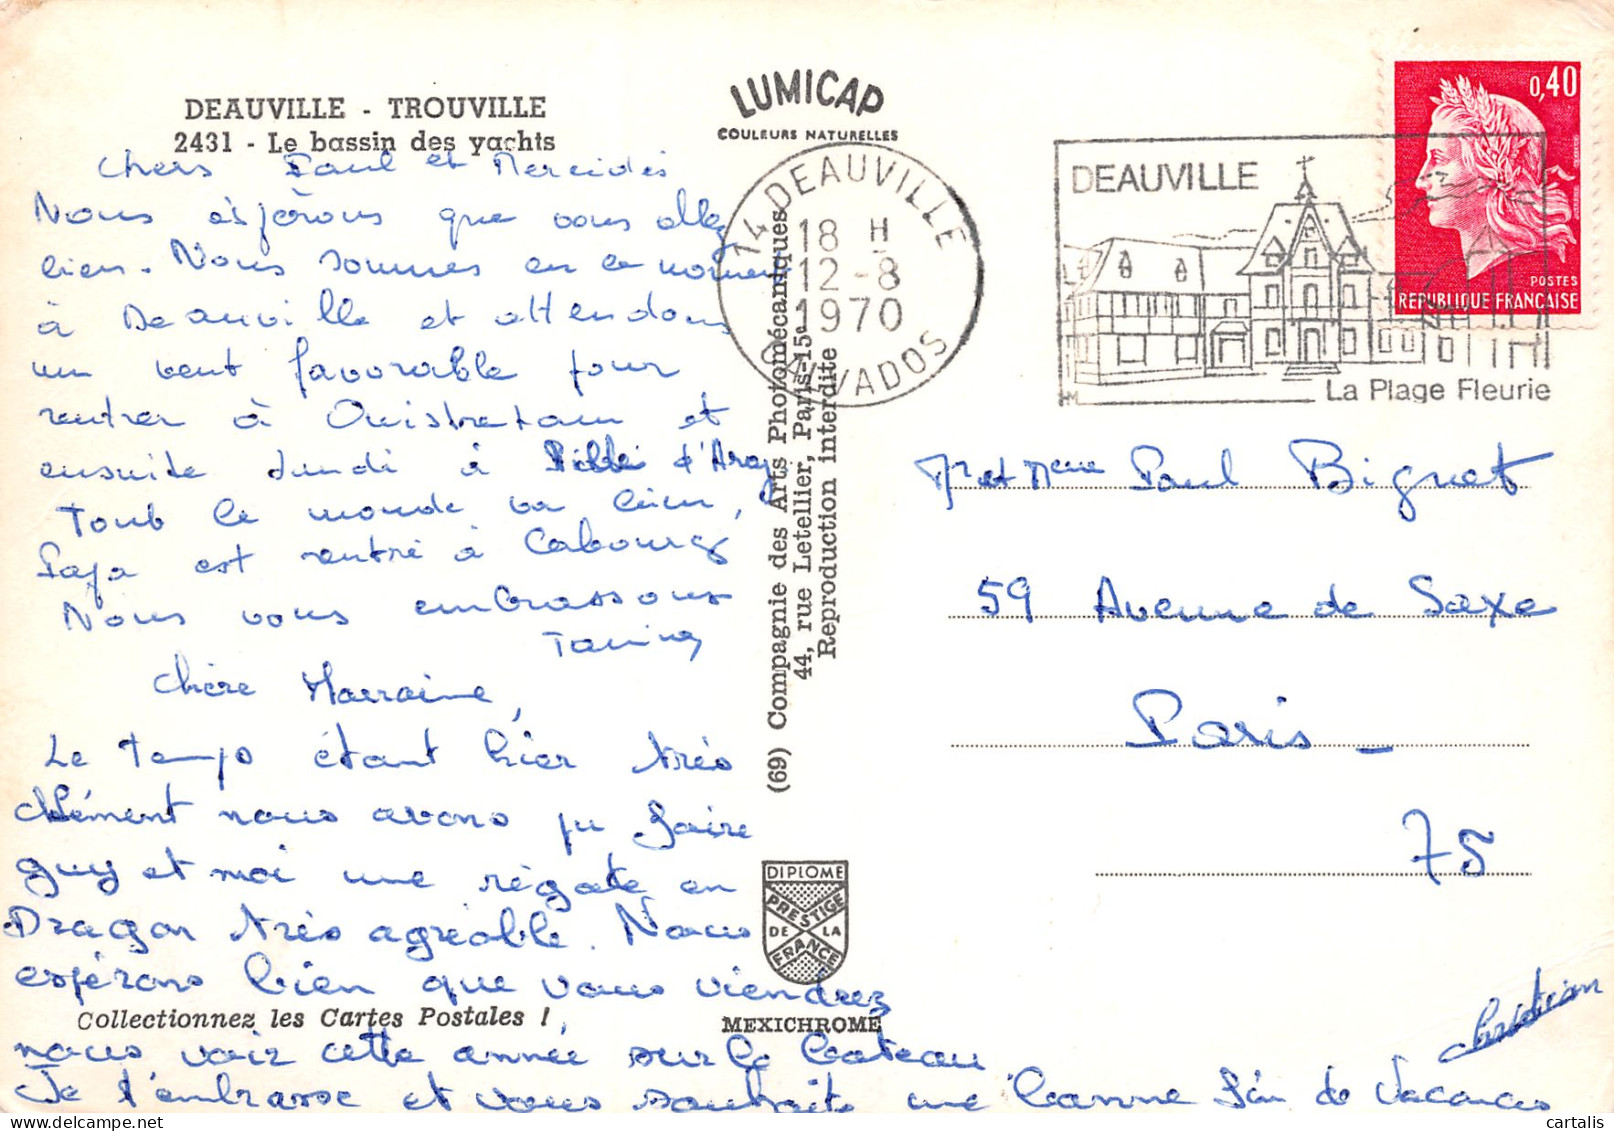 DEAUVILLE - TROUVILLE
2431 - Le bassin des yachts
Chers Paul et Mercédès
Nous espérons que vous allez
bien. Nous sommes en ce moment
à Deauville et attendons
un vent favorable pour
rentrer à Ouistreham et
ensuite lundi à Ville d'Avray
Tout le monde va bien,
Papa est rentré à Cabourg
Nous vous embrassons
Chère Marraine,
Le temps étant hier très
clément nous avons pu faire
guy et moi une régate en
Dragon très agréable. Nous
espérons bien que vous viendrez
Collectionnez les Cartes Postales !
nous voir cette année sur le bateau
Je t'embrasse et vous souhaite une bonne fin de vacances
Christian
LUMICAP
COULEURS NATURELLES
(69) Compagnie des Arts Photomécaniques
44, rue Letellier, Paris-15e
Reproduction interdite
DIPLOME
PRESTIGE
DE LA
FRANCE
MEXICHROME
14 DEAUVILLE
18 H
12-8
1970
CALVADOS
DEAUVILLE
La Plage Fleurie
HM
0,40
POSTES
REPUBLIQUE FRANÇAISE
Mr et Mme Paul Bignet
59 Avenue de Saxe
Paris -
75
cartalis